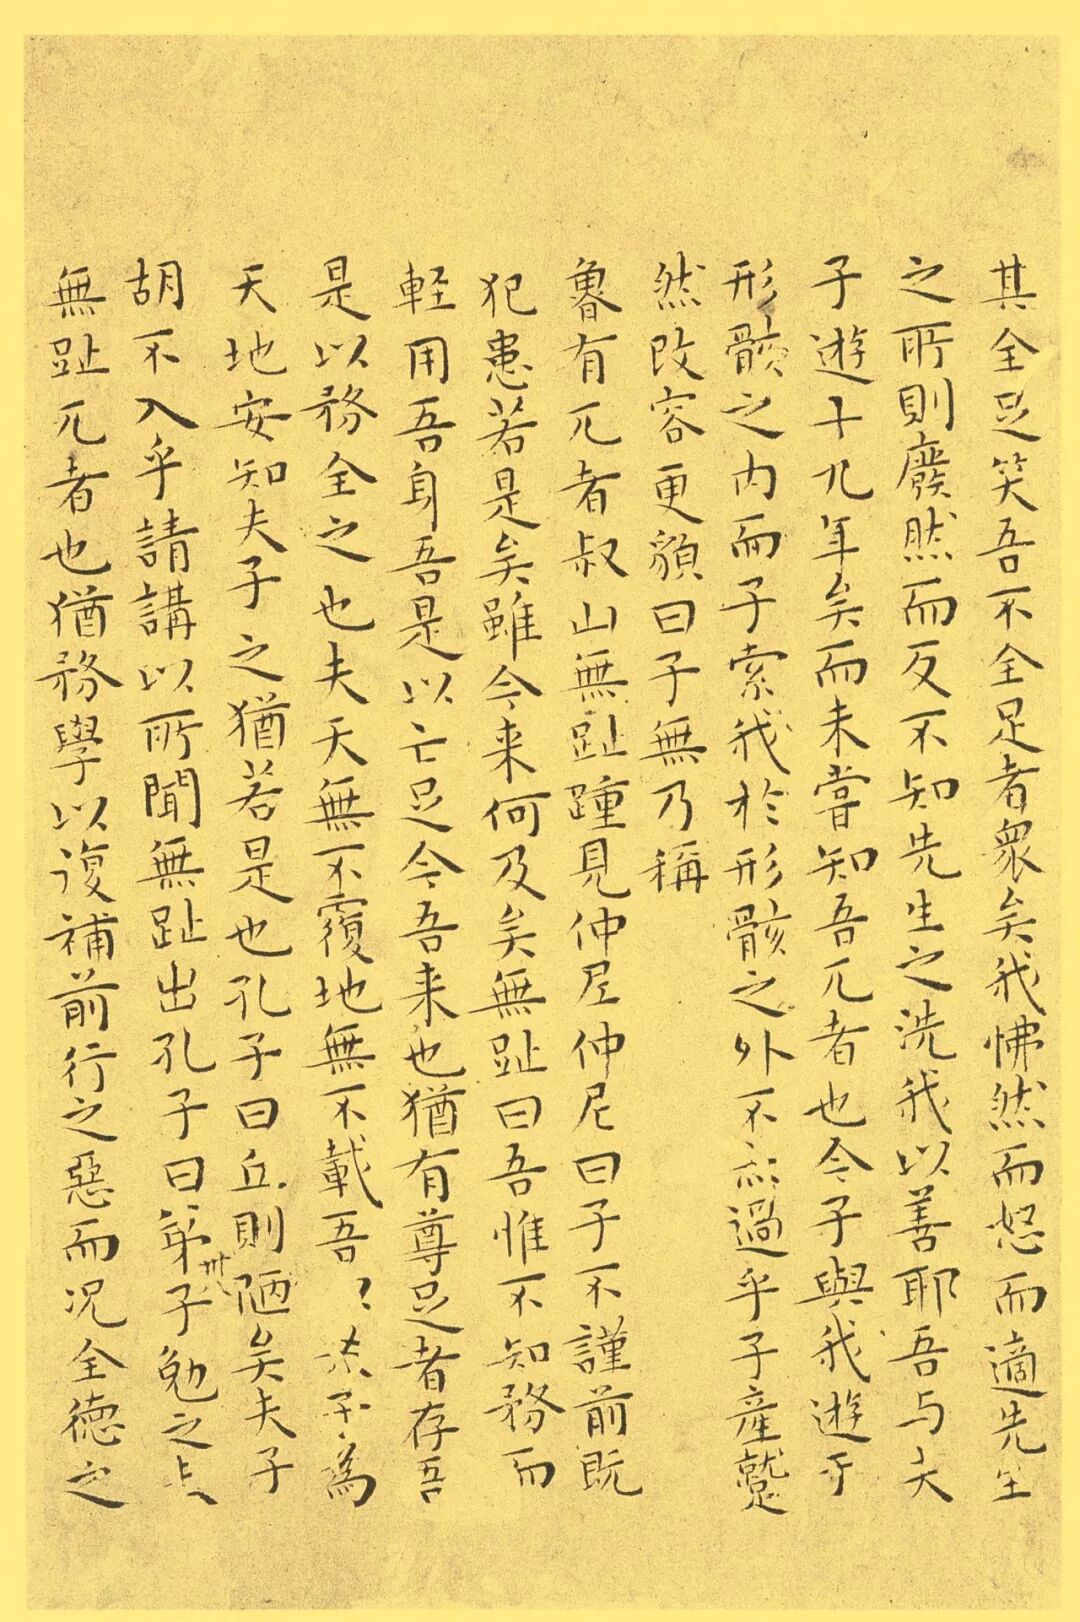 其全足笑吾不全足者衆矣我怫然而怒而適先生
之所則廢然而反不知先生之洗我以善耶吾与夫
子遊十九年矣而未嘗知吾兀者也今子與我遊于
形骸之内而子索我於形骸之外不亦過乎子産蹵
然改容更皃曰子無乃稱
魯有兀者叔山無趾踵見仲尼仲尼曰子不謹前既
犯患若是矣雖今来何及矣無趾曰吾惟不知務而
軽用吾身吾是以亡足今吾来也猶有尊足者存吾
是以務全之也夫天無不覆地無不載吾〻夫子為
天地安知夫子之猶若是也孔子曰丘則陋矣夫子
胡不入乎請講以所聞無趾出孔子曰弟子勉之
無趾兀者也猶務學以復補前行之惡而况全徳之